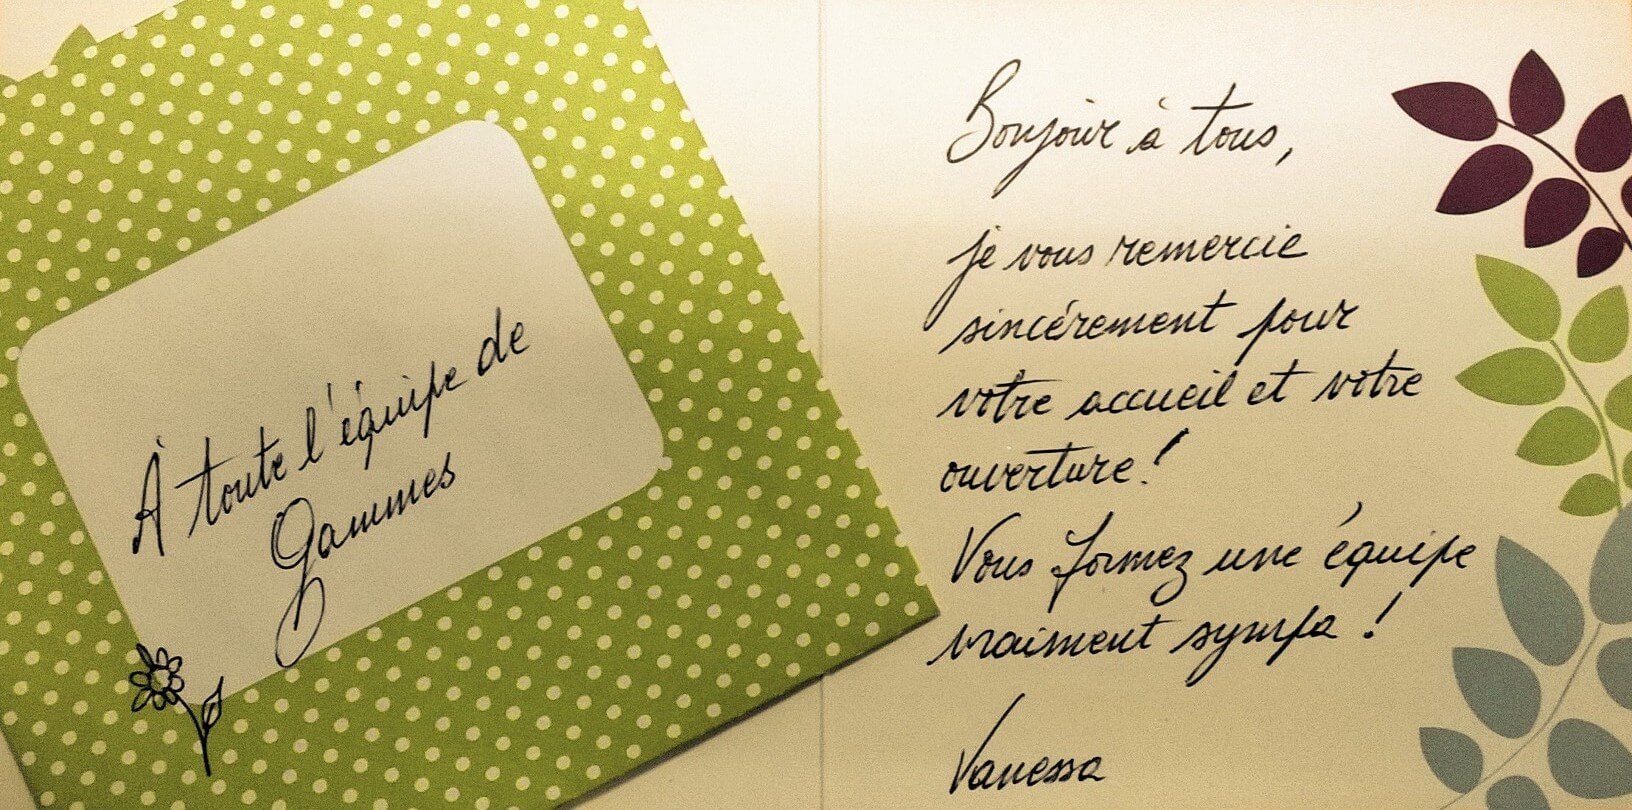 À toute l'équipe de
Gammes
Bonjour à tous,
je vous remercie
sincérement pour
votre accueil et votre
ouverture!
Vous formez une équipe
vraiment sympa !
Vanessa